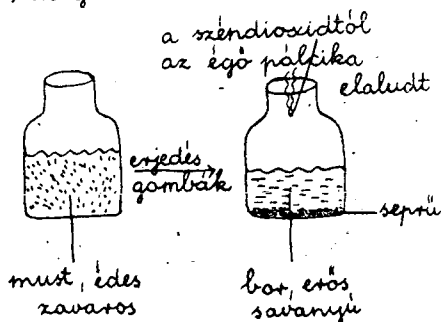 a széndioxidtól
az égő pálcika
elaludt
erjedés
gombák
seprű
must, édes
zavaros
bor, erős,
savanyú